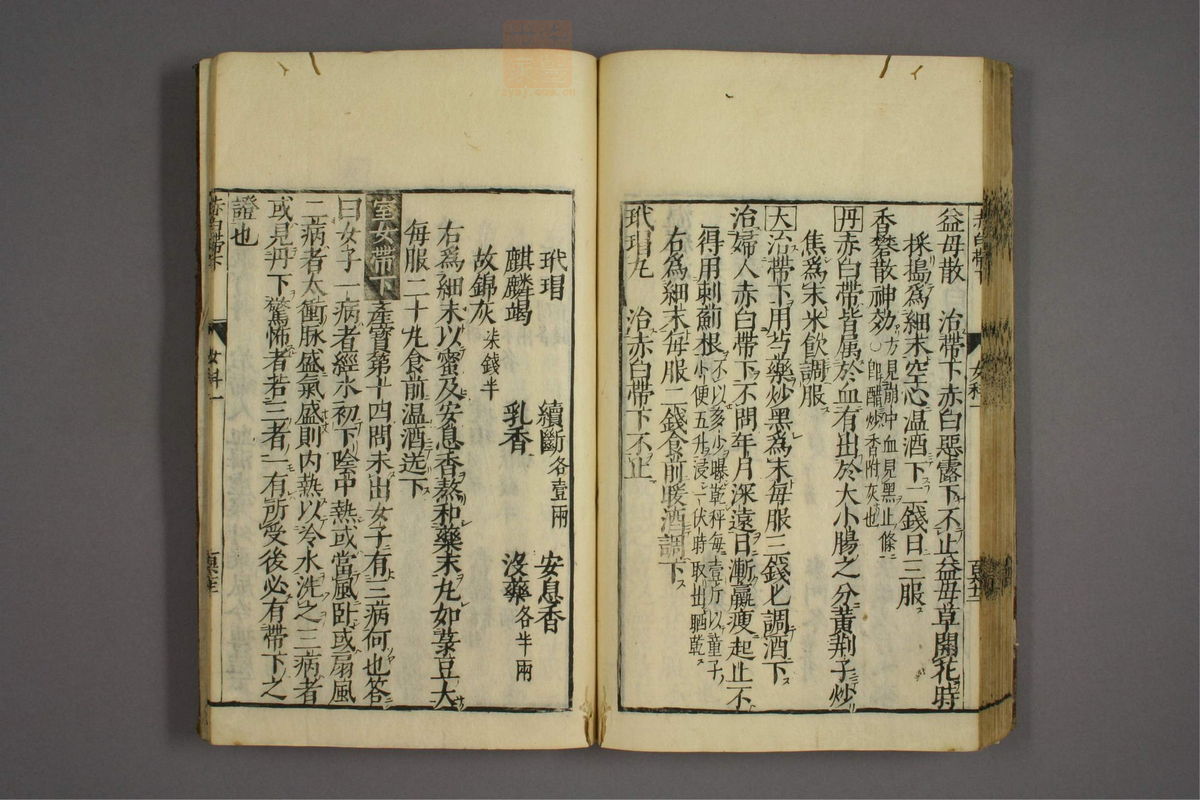 益母散 治帶下赤白惡露下不止益母草開花時
採搗爲細末空心温酒下一錢日三服
香礬散神効方見崩中血見黑止條○卽醋炒香附灰也
丹赤白帶皆属於血有出於大小腸之分黄荆子炒
焦爲末米飲調服
大治帶下用芍藥炒黑爲末每服三錢匕調酒下
治婦人赤白帶下不問年月深遠日漸羸瘦起止不
得用刺薊根不以多少曝乾秤每壹斤以童子小便五升浸一伏時取出晒乾
右爲細末每服二錢食前暖酒調下
玳瑁丸 治赤白帶下不止
玳瑁 續斷各壹兩 安息香
麒麟竭 乳香 沒藥各半兩
故錦灰柒錢半
右爲細末以蜜及安息香熬和藥末丸如菉豆大
每服二十丸食前温酒送下
室女帶下 産寶第十四問未出女子有三病何也答
曰女子一病者經水初下陰中熱或當風卧或扇風
二病者太衝脉盛氣盛則内熱以冷水洗之三病者
或見丹下驚怖者若三者一有所受後必有帶下之
證也
赤白帶下 女科一